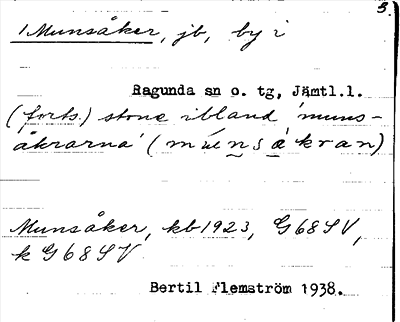 3.
1 Munsåker, jb, by i
Ragunda sn o. tg, Jämtl.l.
(forts.) stone ibland 'muns-
åkrarna' (munsåkran)
Munsåker, kb 1923, G68SV,
k G68SV
Bertil Flemström 1938.